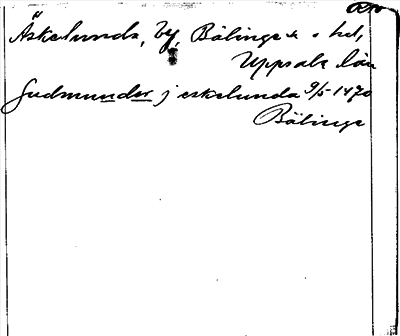 Äskelunda, by, Bälinge s o hd,
Uppsala län
Gudmunder j eskelunda 9/5 1470
Bälinge